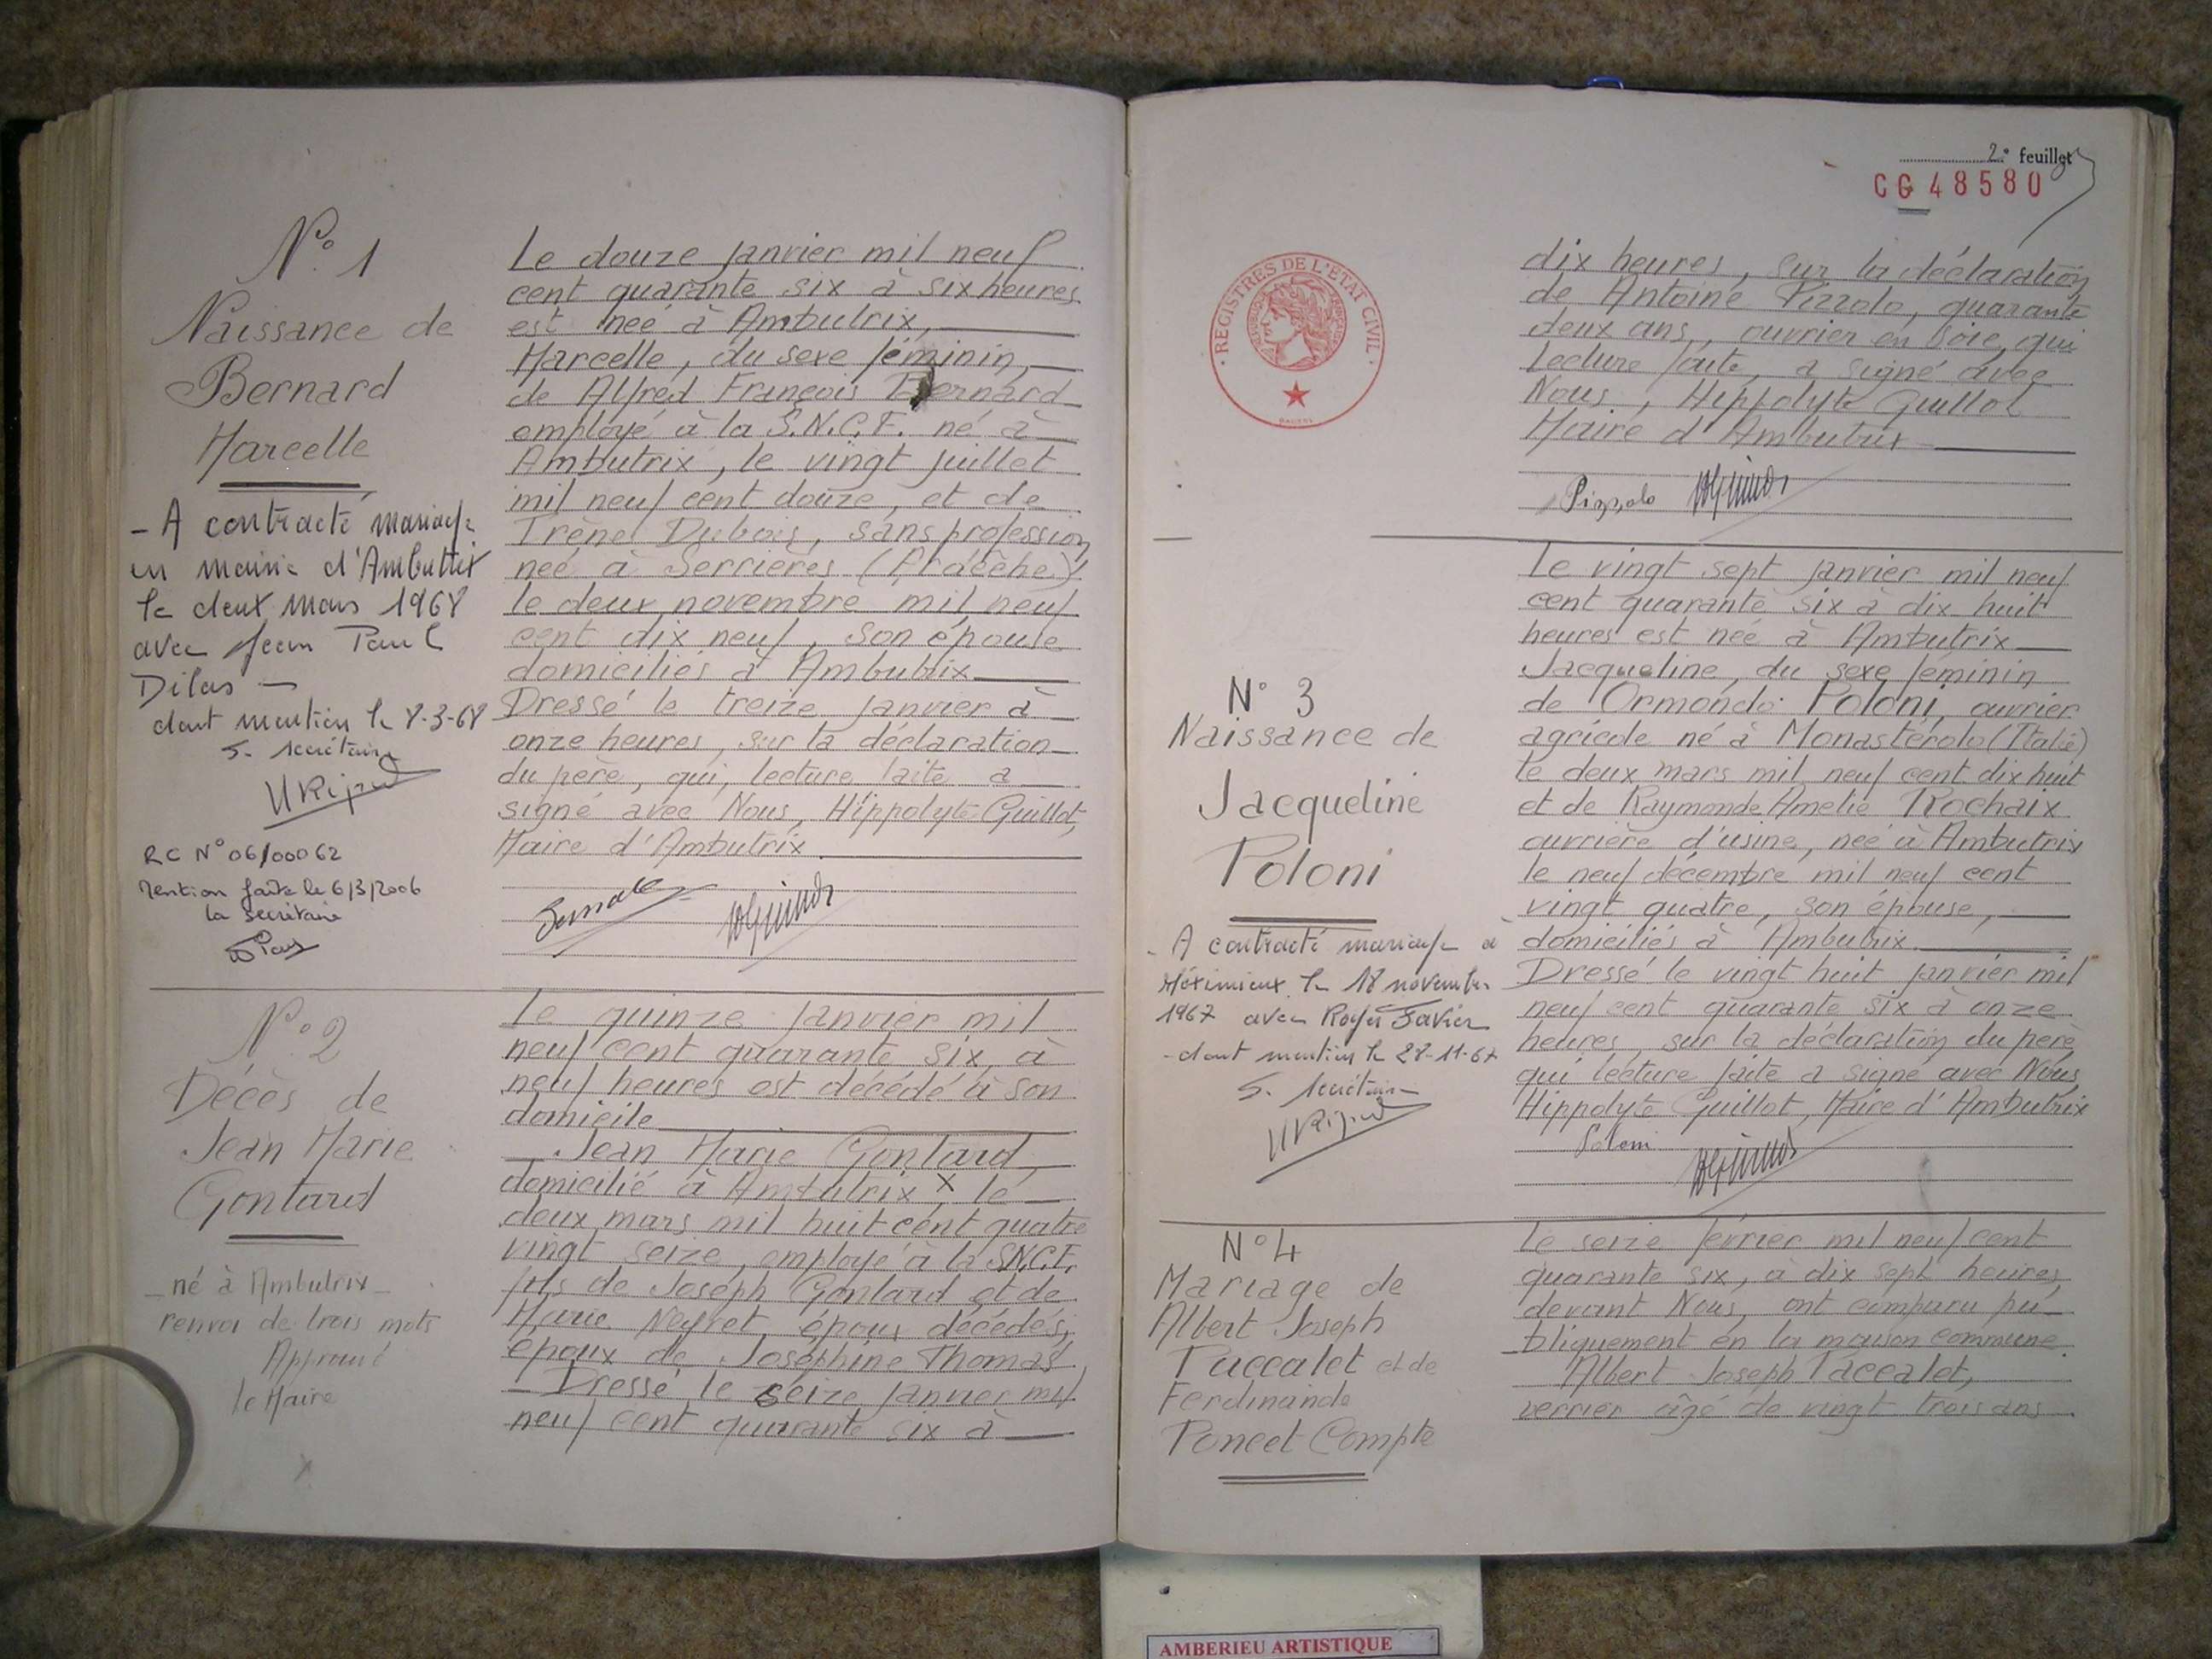 N° 1
Naissance de
Bernard
Marcelle
- A contracté mariage
en mairie d'Ambutrix
le deux mars 1968
avec Jean Paul
Dilas -
dont mention le 8-3-68
S. Secrétaire
RC N° 06/00062
Mention faite le 6/3/2006
la secrétaire
Le douze janvier mil neuf
cent quarante six à six heures
est née à Ambutrix,
Marcelle, du sexe féminin,
de Alfred François Bernard
employé à la S.N.C.F. né à
Ambutrix, le vingt juillet
mil neuf cent douze, et de
Irène Dubois, sans profession
née à Serrières (Ardèche)
le deux novembre mil neuf
cent dix neuf, son épouse
domiciliés à Ambutrix
Dressé le treize janvier à
onze heures, sur la déclaration
du père, qui, lecture faite a
signé avec Nous, Hippolyte Guillot,
Maire d'Ambutrix
N° 2
Décès de
Jean Marie
Gontard
- né à Ambutrix -
renvoi de trois mots
Approuvé
le Maire
Le quinze janvier mil
neuf cent quarante six, à
neuf heures est décédé à son
domicile
Jean Marie Gontard,
domicilié à Ambutrix x, le
deux mars mil huit cent quatre
vingt seize, employé à la S.N.C.F.
fils de Joseph Gontard et de
Marie Neyret, époux décédés,
époux de Joséphine Thomas
- Dressé le seize janvier mil
neuf cent quarante six à
2e feuillet
CG 48580
REGISTRES DE L'ETAT CIVIL
dix heures, sur la déclaration
de Antoine Pizzolo, quarante
deux ans, ouvrier en soie, qui
lecture faite, a signé avec
Nous, Hippolyte Guillot
Maire d'Ambutrix
Pizzolo
N° 3
Naissance de
Jacqueline
Poloni
- A contracté mariage à
Méximieux le 18 novembre
1967 avec Roger Favier
- dont mention le 28-11-67
S. Secrétaire
Le vingt sept janvier mil neuf
cent quarante six à dix huit
heures est née à Ambutrix
Jacqueline, du sexe féminin
de Ormondo Poloni, ouvrier
agricole né à Monasterolo (Italie)
le deux mars mil neuf cent dix huit
et de Raymonde Amelie Rochaix
ouvrière d'usine, née à Ambutrix
le neuf décembre mil neuf cent
vingt quatre, son épouse,
domiciliés à Ambutrix
Dressé le vingt huit janvier mil
neuf cent quarante six à onze
heures, sur la déclaration du père
qui lecture faite a signé avec Nous
Hippolyte Guillot, Maire d'Ambutrix
Poloni
N° 4
Mariage de
Albert Joseph
Paccalet et de
Ferdinande
Poncet Compte
Le seize février mil neuf cent
quarante six, à dix sept heures,
devant Nous, ont comparu pu-
bliquement en la maison commune
Albert Joseph Paccalet,
verrier âgé de vingt trois ans
AMBERIEU ARTISTIQUE